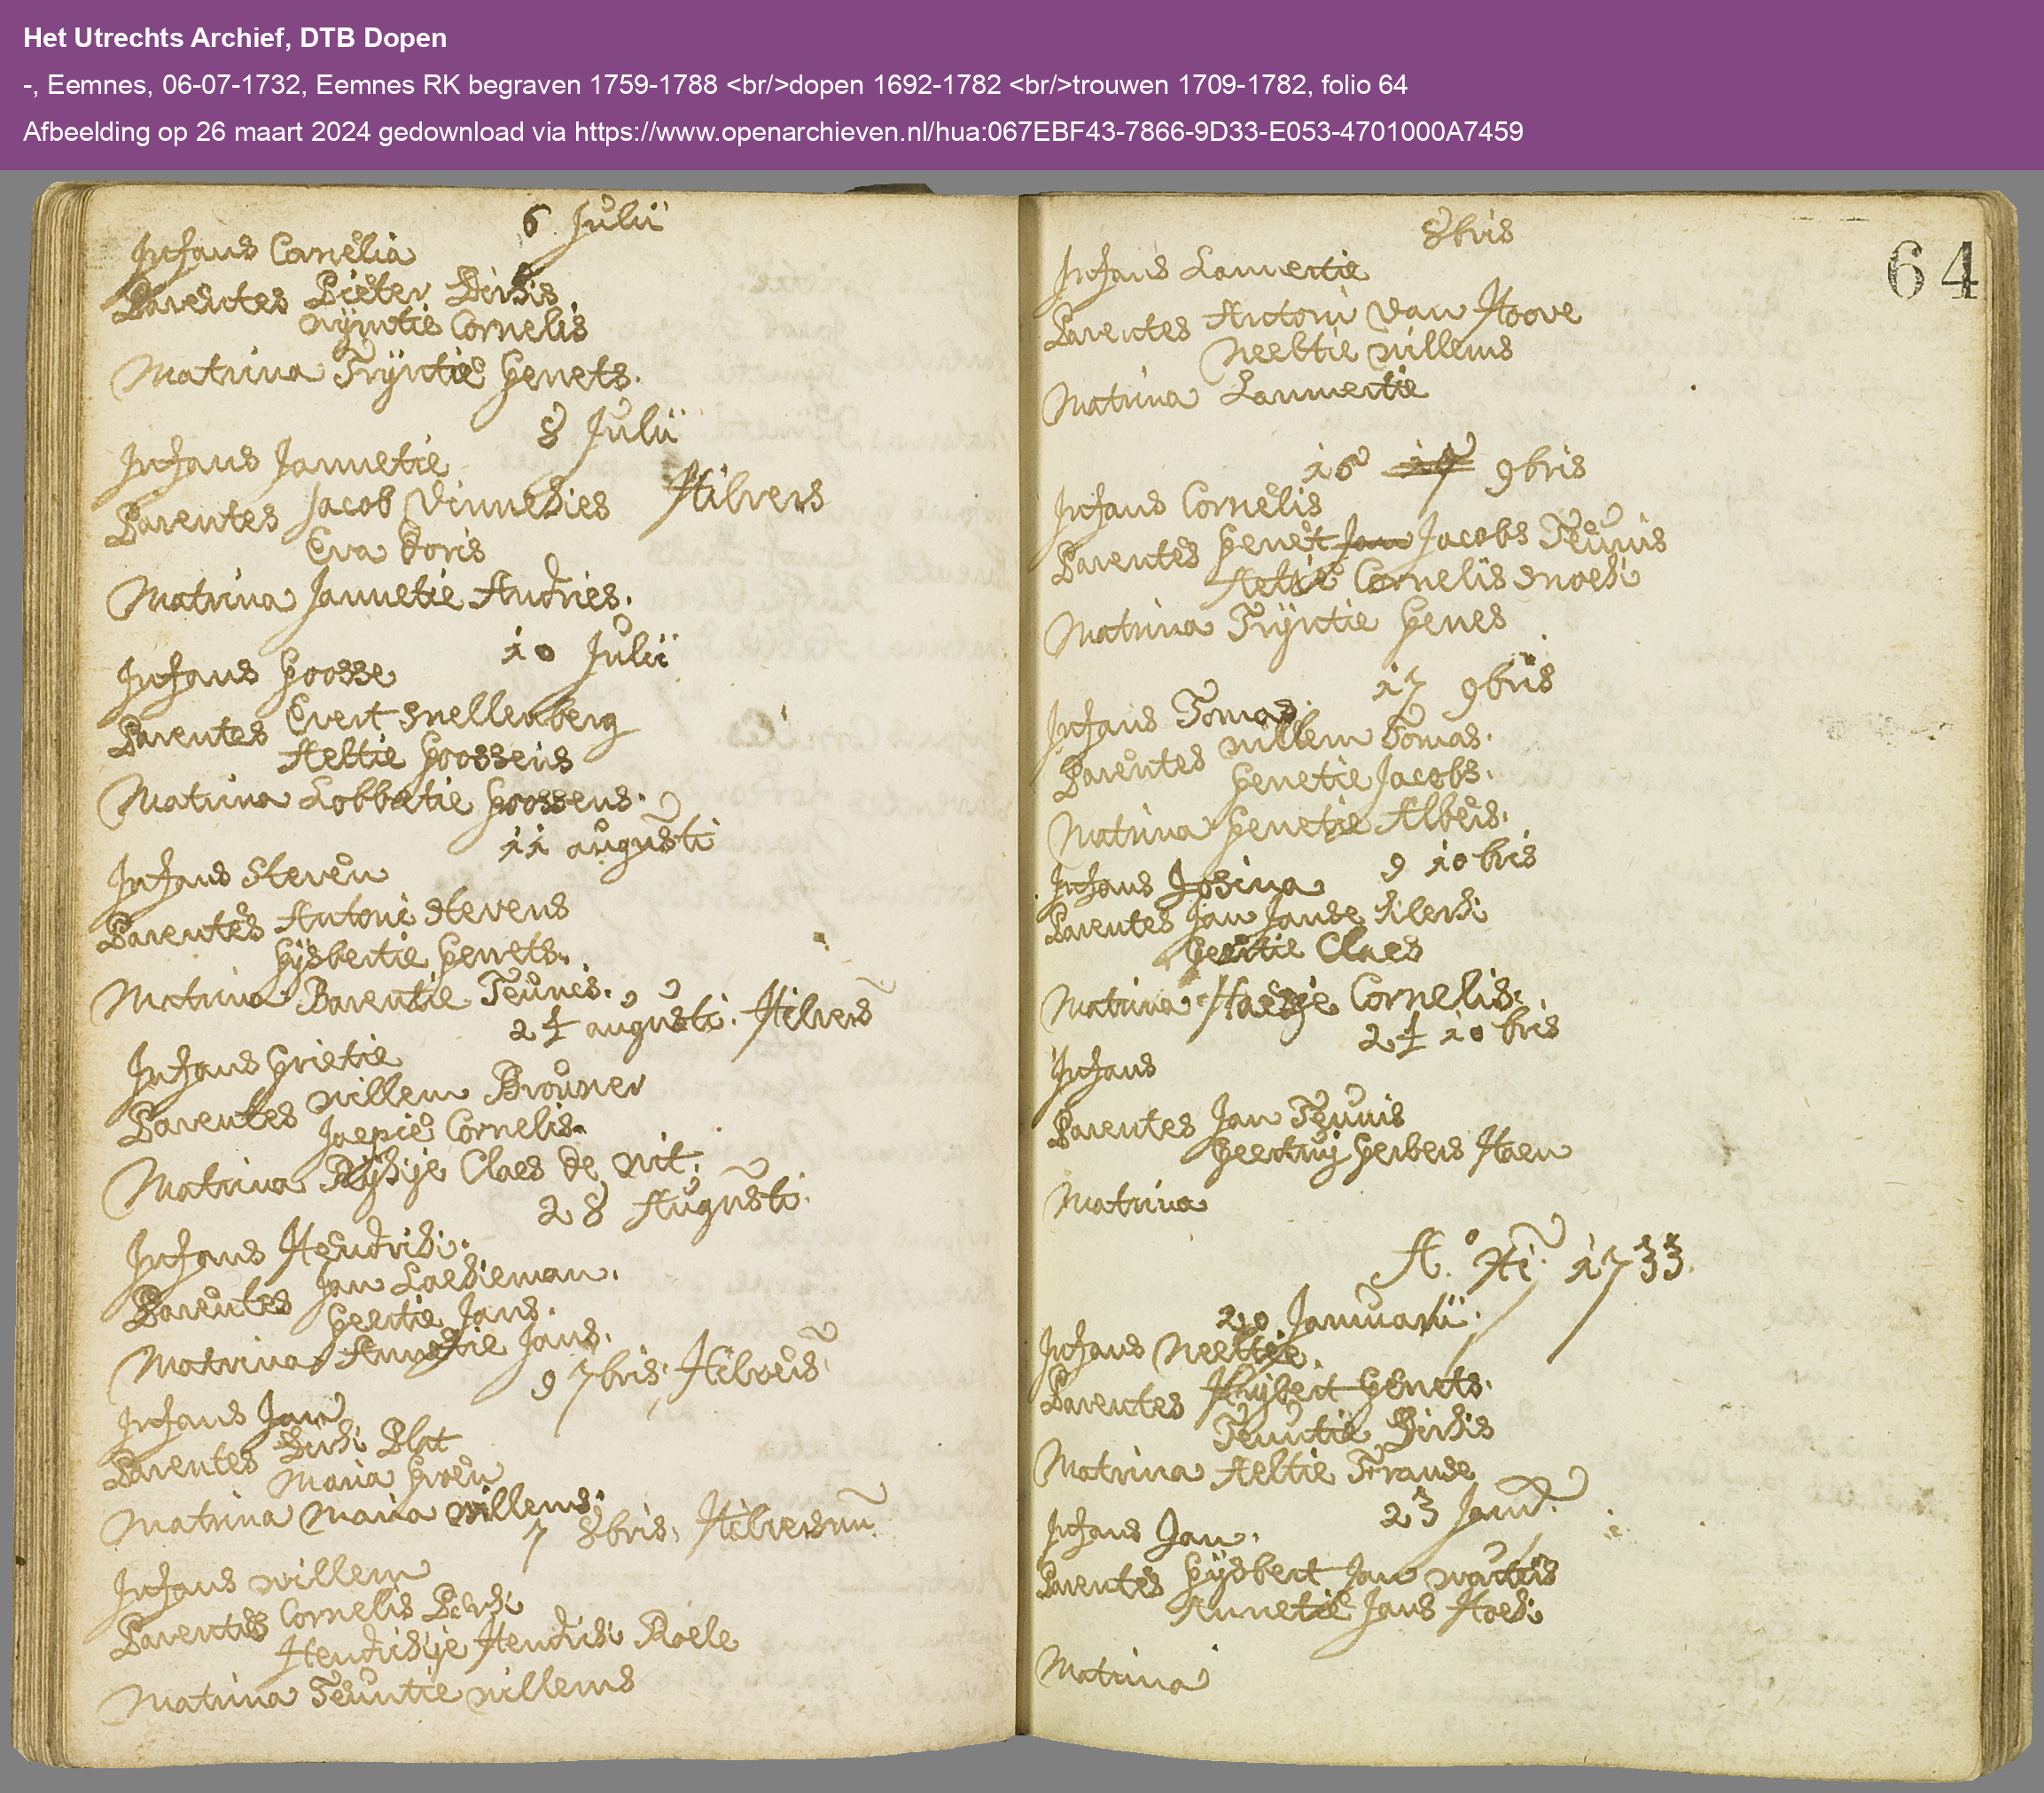 Het Utrechts Archief, DTB Dopen
-, Eemnes, 06-07-1732, Eemnes RK begraven 1759-1788 <br/>dopen 1692-1782 <br/>trouwen 1709-1782, folio 64
Afbeelding op 26 maart 2024 gedownload via https://www.openarchieven.nl/hua:067EBF43-7866-9D33-E053-4701000A7459
6 Julii
Infans Cornelia
Parentes Pieter Dirks
Wÿntie Cornelis
Matrina Trÿntie Gerrets.
8 Julii
Infans Jannetie
Parentes Jacob Vinnekies Hilvers
Eva Koris
Matrina Jannetie Andries.
10 Julii
Infans Goosse
Parentes Evert Snellenberg
Aeltie Goossens
Matrina Lobbetie Goossens.
11 augusti
Infans Steven
Parentes Antoni Stevens
Gÿsbertie Gerrets.
Matrina Barentie Teunis.
24 augusti. Hilvers
Infans Grietie
Parentes Willem Brouwer
Jaepie Cornelis
Matrina Claes de Wit.
28 Augusti.
Infans Hendrik.
Parentes Jan Laekieman.
Geertie Jans.
Matrina Annetie Jans.
9 7bris. Hilvers
Infans Jan
Parentes Dirk Plat
Maria Groen
Matrina Maria Willems.
7 8bris. Hilversum
Infans Willem
Parentes Cornelis
Hendrikje Hendrik Roele
Matrina Teuntie Willems
64
8bris
Infans Lammertie
Parentes Antoni Van Hoove
Neeltie Willems
Matrina Lammertie
16 17 9bris
Infans Cornelis
Parentes Gerret Jan Jacobs Teunis
Aeltie Cornelis Snoek
Matrina Trÿntie Gerres
17 9bris
Infans Tomas.
Parentes Willem Tomas.
Gerretie Jacobs.
Matrina Gerretie Albers.
9 10bris
Infans Josina
Parentes Jan Janse
Geertie Claes
Matrina Cornelis.
24 10bris
Infans
Parentes Jan Teunis
Geertruÿ Gerbers Haen
Matrina
A.° 1733.
20 Januarii.
Infans Neeltie.
Parentes Huÿbert Gerrets.
Teuntie Dirks
Matrina Aeltie Franse
23 Janu.
Infans Jan.
Parentes Gÿsbert Jan
Annetie Jans Hoek
Matrina